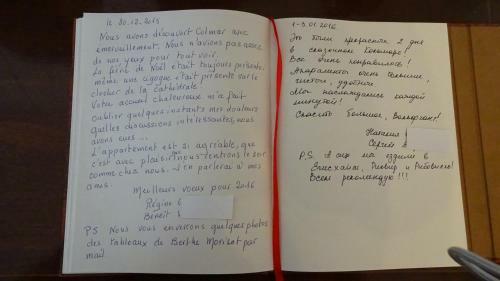 le 30.12.2015
Nous avons découvert Colmar avec
émerveillement. Nous n'avions pas assez
de nos yeux pour tout voir.
La féerie de Noël était toujours présente.
même une cigogne était présente sur le
clocher de la cathédrale.
Votre accueil chaleureux m'a fait
oublier quelques instants mes douleurs
quelles discussions intéressantes, nous
avons eues...
L'appartement est si agréable, que
c'est avec plaisir que nous rentrons le soir
comme chez nous. J'en parlerai à mes
amis.
Meilleurs voeux pour 2016
Régine
Benoît
PS Nous vous enverrons quelques photos
des tableaux de Berthe Morisot par
mail.
1-3.01.2016
Это были прекрасных 2 дня
в сказочном Кольмаре!
Все очень понравилось!
Апартаменты очень
чистые, удобные
Мы наслаждались каждой
минутой!
Спасибо большое, Вольфганг!
Наталия
Сергей
P.S. А еще мы ездили в
Эгисхайм, Риквир и Рибовилле!
Всем рекомендую!!!